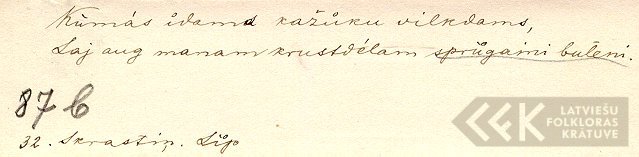 Kūmās īdamd kažūku vilkdams,
Laj aug manam krustdēlam sprūgaini bušeni.
87 b
32. Skrastiņ. Līp
LATVIEŠU
FOLKLORAS
KRĀTUVE